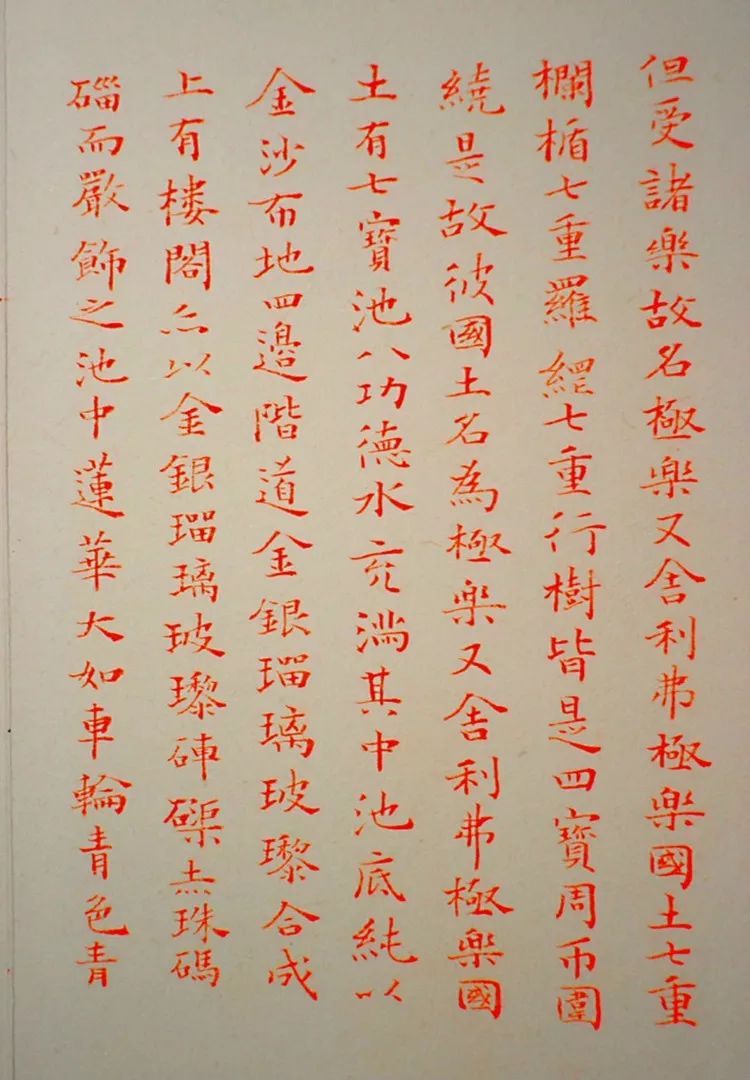 但受諸樂故名極樂又舍利弗極樂國土七重
欄楯七重羅網七重行樹皆是四寶周帀圍
繞是故彼國土名為極樂又舍利弗極樂國
土有七寶池八功德水充滿其中池底純以
金沙布地四邊階道金銀瑠璃玻瓈合成
上有楼閣亦以金銀瑠璃玻瓈硨磲赤珠碼
碯而嚴飾之池中蓮華大如車輪青色青